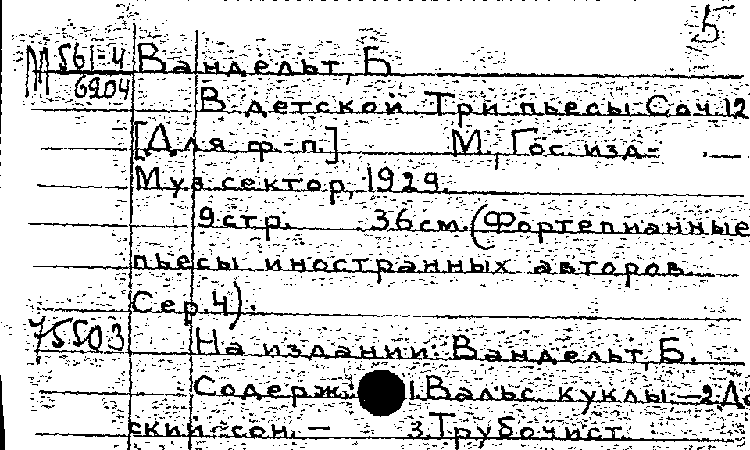 5
М 561-4 Вандельт, Б
6904
В детской Три пьесы Соч. 12
[Для ф-п.] М., Гос. изд-
Муз. сектор, 1929.
9 стр. 36 см. (Фортепианные
пьесы иностранных авторов
Сер. 4).
75503 На издании: Вандельт, Б.
Содерж.: 1. Вальс куклы. — 2. Де
ский сон. — 3. Трубочист.